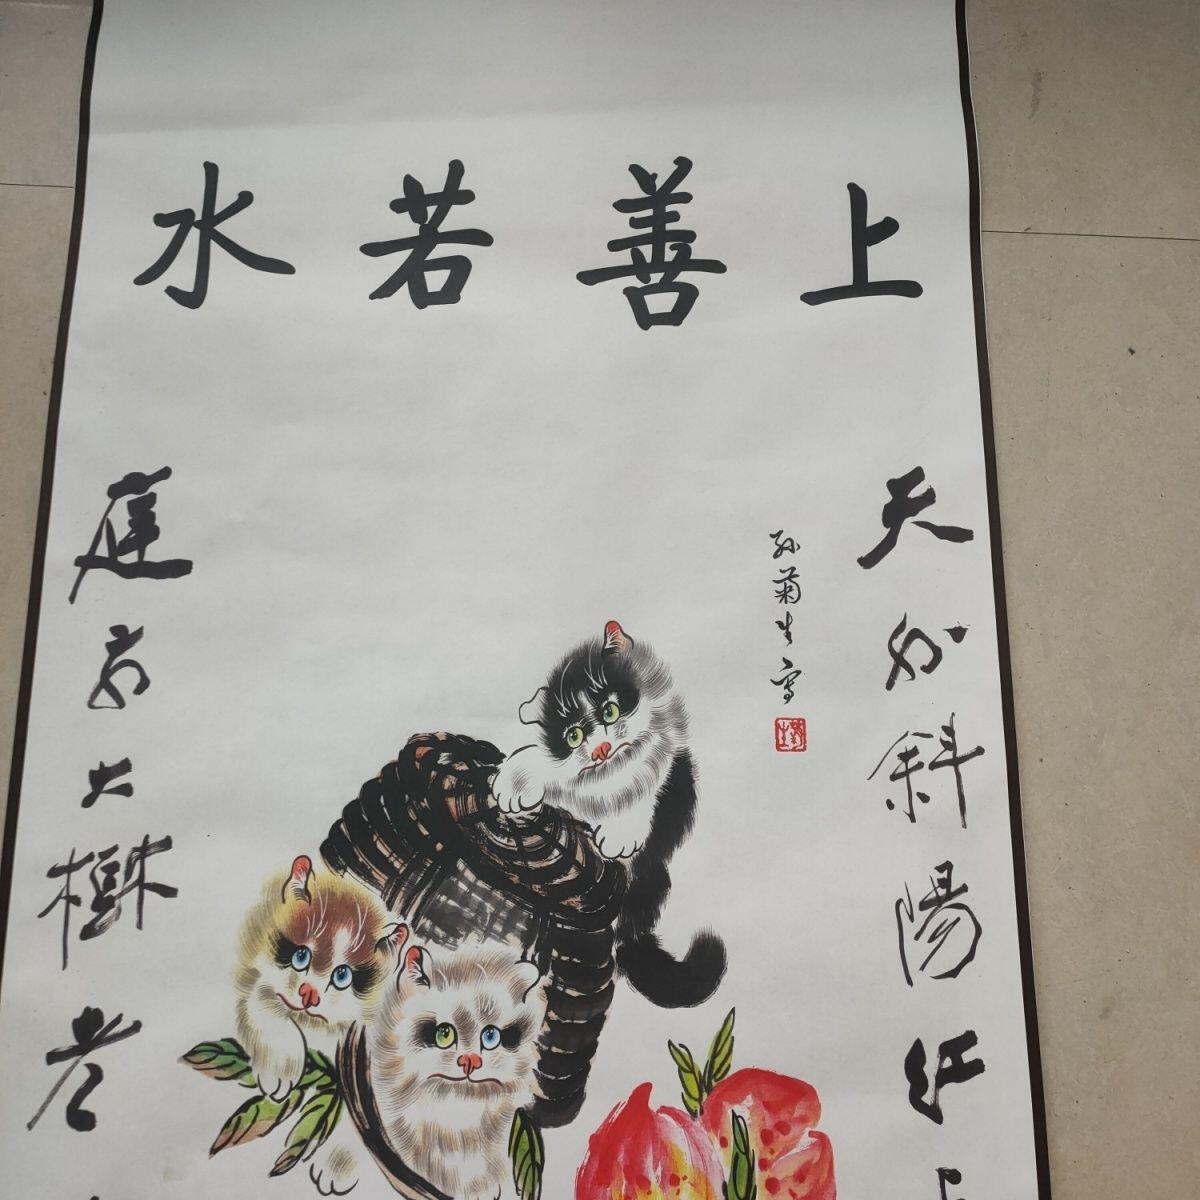 上善若水
天外斜陽红
孙菊生写
庭前大樹老